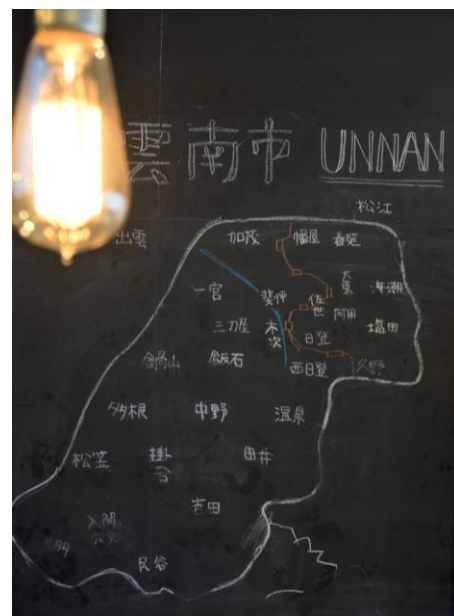 雲南市 UNNAN
松江
出雲 加茂 幡屋 春殖
一宮 斐伊 佐世 大東 海潮
三刀屋 木次 日登 阿用 塩田
鍋山 飯石 西日登 久野
多根 中野 温泉
松笠 掛合 田井
吉田
入間
民谷